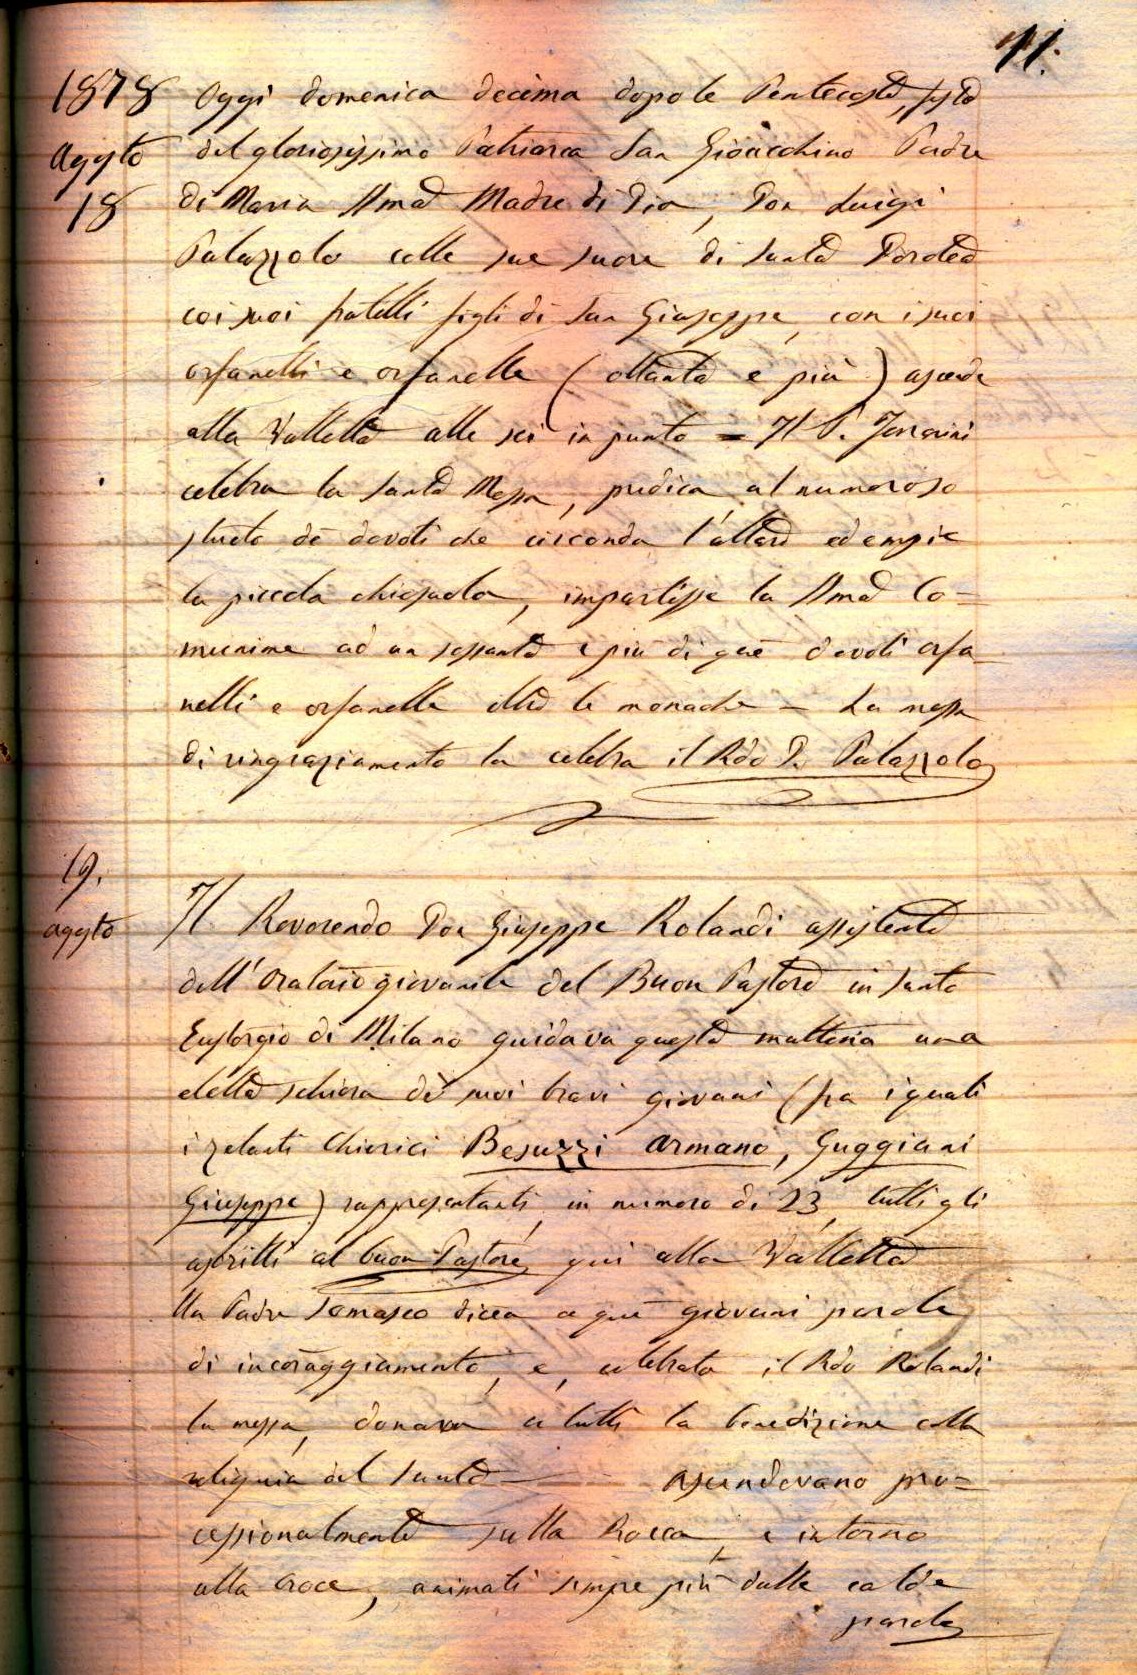 11.
1878 Oggi domenica decima dopo le Pentecoste, festa
Agosto del gloriosissimo Patriarca San Gioacchino Padre
18 di Maria SSma Madre di Dio, Don Luigi
Palazzolo colle sue suore di Santa Dorotea
coi suoi fratelli figli di San Giuseppe, con i suoi
orfanelli e orfanelle (ottanta e più) ascende
alla Valletta alle sei in punto = Il P.
celebra la santa Messa, predica al numeroso
stuolo de devoti che circonda l'altare ed empie
la piccola chiesuola, impartisse la SSma Co-
munione ad un sessanta e più di que devoti orfa-
nelli e orfanelle oltre le monache — La messa
di ringraziamento la celebra il Rdo D. Palazzolo
19.
agosto Il Reverendo Don Giuseppe Rolandi assistente
dell'Oratorio giovanile del Buon Pastore in Santo
Eustorgio di Milano guidava questa mattina una
eletta schiera de suoi bravi giovani (fra i quali
i zelanti Chierici Besuzzi Armano, Guggiani
Giuseppe) rappresentanti, in numero di 23, tutti gli
ascritti al buon Pastore, qui alla Valletta
Un Padre Somasco dicea a que giovani parole
di incoraggiamento, e, celebrata il Rdo Rolandi
la messa, donava a tutti la benedizione colla
reliquia del Santo — ascendevano pro=
cessionalmente sulla Rocca, e intorno
alla Croce, animati sempre più dalle calde
parole